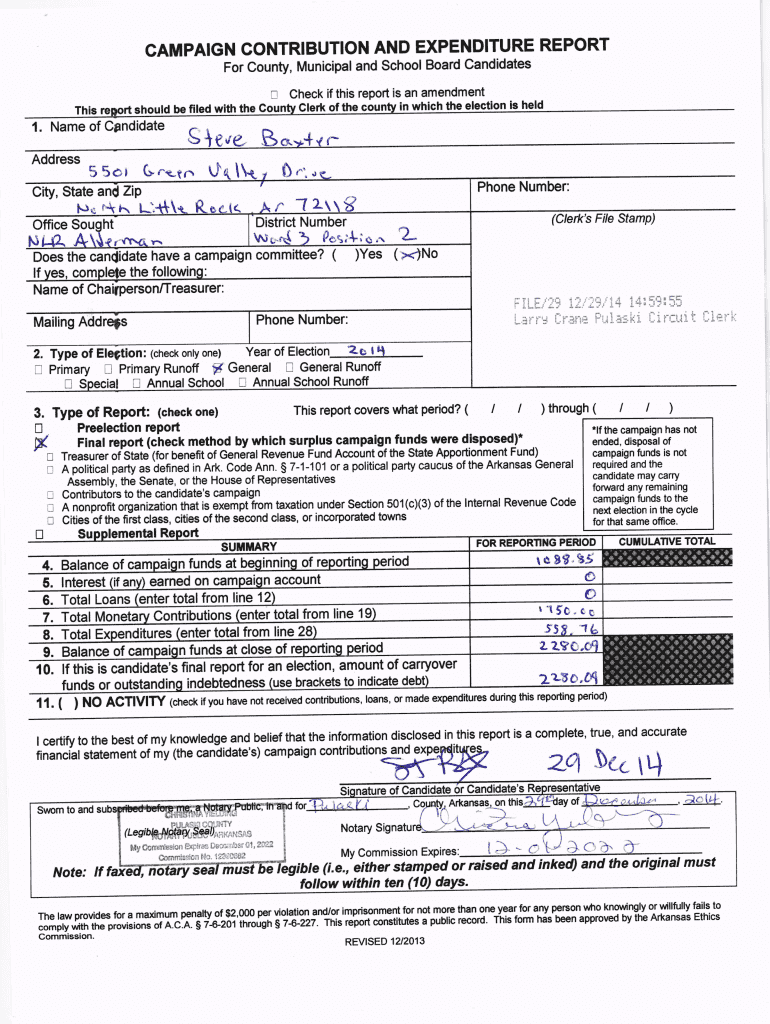 CAMPAIGN CONTRIBUTION AND EXPENDITURE REPORT
For County, Municipal and School Board Candidates
☐ Check if this report is an amendment
This report should be filed with the County Clerk of the county in which the election is held
1. Name of Candidate Steve Baxter
Address
5501 Green Valley Drive
City, State and Zip
North Little Rock, Ar 72118
Phone Number:
Office Sought
NLR Alderman
District Number
Ward 3 Position 2
(Clerk's File Stamp)
Does the candidate have a campaign committee? ( )Yes (x)No
If yes, complete the following:
Name of Chairperson/Treasurer:
FILE/29 12/29/14 14:59:55
Larry Crane Pulaski Circuit Clerk
Mailing Address
Phone Number:
2. Type of Election: (check only one) Year of Election 2014
☐ Primary ☐ Primary Runoff ☒ General ☐ General Runoff
☐ Special ☐ Annual School ☐ Annual School Runoff
3. Type of Report: (check one) This report covers what period? ( / / ) through ( / / )
☐ Preelection report
☒ Final report (check method by which surplus campaign funds were disposed)*
☐ Treasurer of State (for benefit of General Revenue Fund Account of the State Apportionment Fund)
☐ A political party as defined in Ark. Code Ann. § 7-1-101 or a political party caucus of the Arkansas General
Assembly, the Senate, or the House of Representatives
☐ Contributors to the candidate's campaign
☐ A nonprofit organization that is exempt from taxation under Section 501(c)(3) of the Internal Revenue Code
☐ Cities of the first class, cities of the second class, or incorporated towns
☐ Supplemental Report
*If the campaign has not
ended, disposal of
campaign funds is not
required and the
candidate may carry
forward any remaining
campaign funds to the
next election in the cycle
for that same office.
SUMMARY FOR REPORTING PERIOD CUMULATIVE TOTAL
4. Balance of campaign funds at beginning of reporting period 1088.85
5. Interest (if any) earned on campaign account 0
6. Total Loans (enter total from line 12) 0
7. Total Monetary Contributions (enter total from line 19) 1750.00
8. Total Expenditures (enter total from line 28) 558.76
9. Balance of campaign funds at close of reporting period 2280.09
10. If this is candidate's final report for an election, amount of carryover
funds or outstanding indebtedness (use brackets to indicate debt) 2280.09
11. ( ) NO ACTIVITY (check if you have not received contributions, loans, or made expenditures during this reporting period)
I certify to the best of my knowledge and belief that the information disclosed in this report is a complete, true, and accurate
financial statement of my (the candidate's) campaign contributions and expenditures.
29 Dec 14
Signature of Candidate or Candidate's Representative
Sworn to and subscribed before me, a Notary Public, in and for Pulaski, County, Arkansas, on this 29th day of December, 2014.
CHRISTINA YIELDING
PULASKI COUNTY
(Legible Notary Seal)
NOTARY PUBLIC - ARKANSAS
My Commission Expires December 01, 2022
Commission No. 12390082
Notary Signature
My Commission Expires: 12-01-2022
Note: If faxed, notary seal must be legible (i.e., either stamped or raised and inked) and the original must
follow within ten (10) days.
The law provides for a maximum penalty of $2,000 per violation and/or imprisonment for not more than one year for any person who knowingly or willfully fails to
comply with the provisions of A.C.A. § 7-6-201 through § 7-6-227. This report constitutes a public record. This form has been approved by the Arkansas Ethics
Commission.
REVISED 12/2013